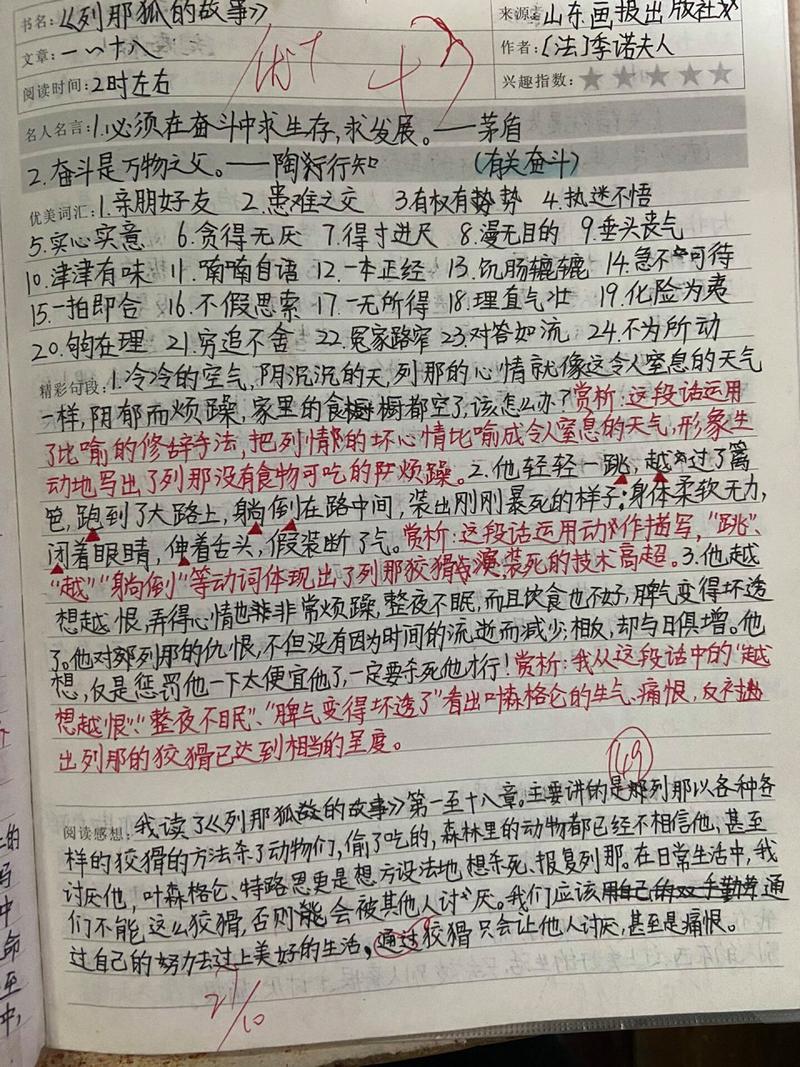 书名:《列那狐的故事》 来源: 山东画报出版社
文章: 一~十八 作者: [法]季诺夫人
阅读时间: 2时左右 兴趣指数: ★★★★★
名人名言: 1.必须在奋斗中求生存,求发展。——茅盾
2.奋斗是万物之父。——陶行知 (有关奋斗)
优美词汇: 1.亲朋好友 2.患难之交 3.有权有势 4.执迷不悟
5.实心实意 6.贪得无厌 7.得寸进尺 8.漫无目的 9.垂头丧气
10.津津有味 11.喃喃自语 12.一本正经 13.饥肠辘辘 14.急不可待
15.一拍即合 16.不假思索 17.一无所得 18.理直气壮 19.化险为夷
20.句句在理 21.穷追不舍 22.冤家路窄 23.对答如流 24.不为所动
精彩句段: 1.冷冷的空气,阴沉沉的天,列那的心情就像这令人窒息的天气
一样,阴郁而烦躁,家里的食橱都空了,该怎么办?赏析:这段话运用
了比喻的修辞手法,把列那的坏心情比喻成令人窒息的天气,形象生
动地写出了列那没有食物可吃的烦躁。2.他轻轻一跳,越过了篱
笆,跑到了大路上,躺倒在路中间,装出刚刚暴死的样子:身体柔软无力,
闭着眼睛,伸着舌头,假装断了气。赏析:这段话运用动作描写,“跳”、
“越”“躺倒”等动词体现出了列那狡猾,演装死的技术高超。3.他越
想越恨,弄得心情也非常烦躁,整夜不眠,而且饮食也不好,脾气变得坏透
了。他对列那的仇恨,不但没有因为时间的流逝而减少;相反,却与日俱增。他
想,仅是惩罚他一下太便宜他了,一定要杀死他才行!赏析:我从这段话中的“越
想越恨”“整夜不眠”、“脾气变得坏透了”看出叶森格仑的生气、痛恨,反衬
出列那的狡猾已达到相当的程度。
49
阅读感想: 我读了《列那狐的故事》第一至十八章。主要讲的是列那以各种各
样的狡猾的方法杀了动物们,偷了吃的,森林里的动物都已经不相信他,甚至
讨厌他,叶森格仑、特路思更是想方设法地想杀死、报复列那。在日常生活中,我
们不能这么狡猾,否则会被其他人讨厌。我们应该通
过自己的努力去过上美好的生活,通过狡猾只会让他人讨厌,甚至是痛恨。
21/10